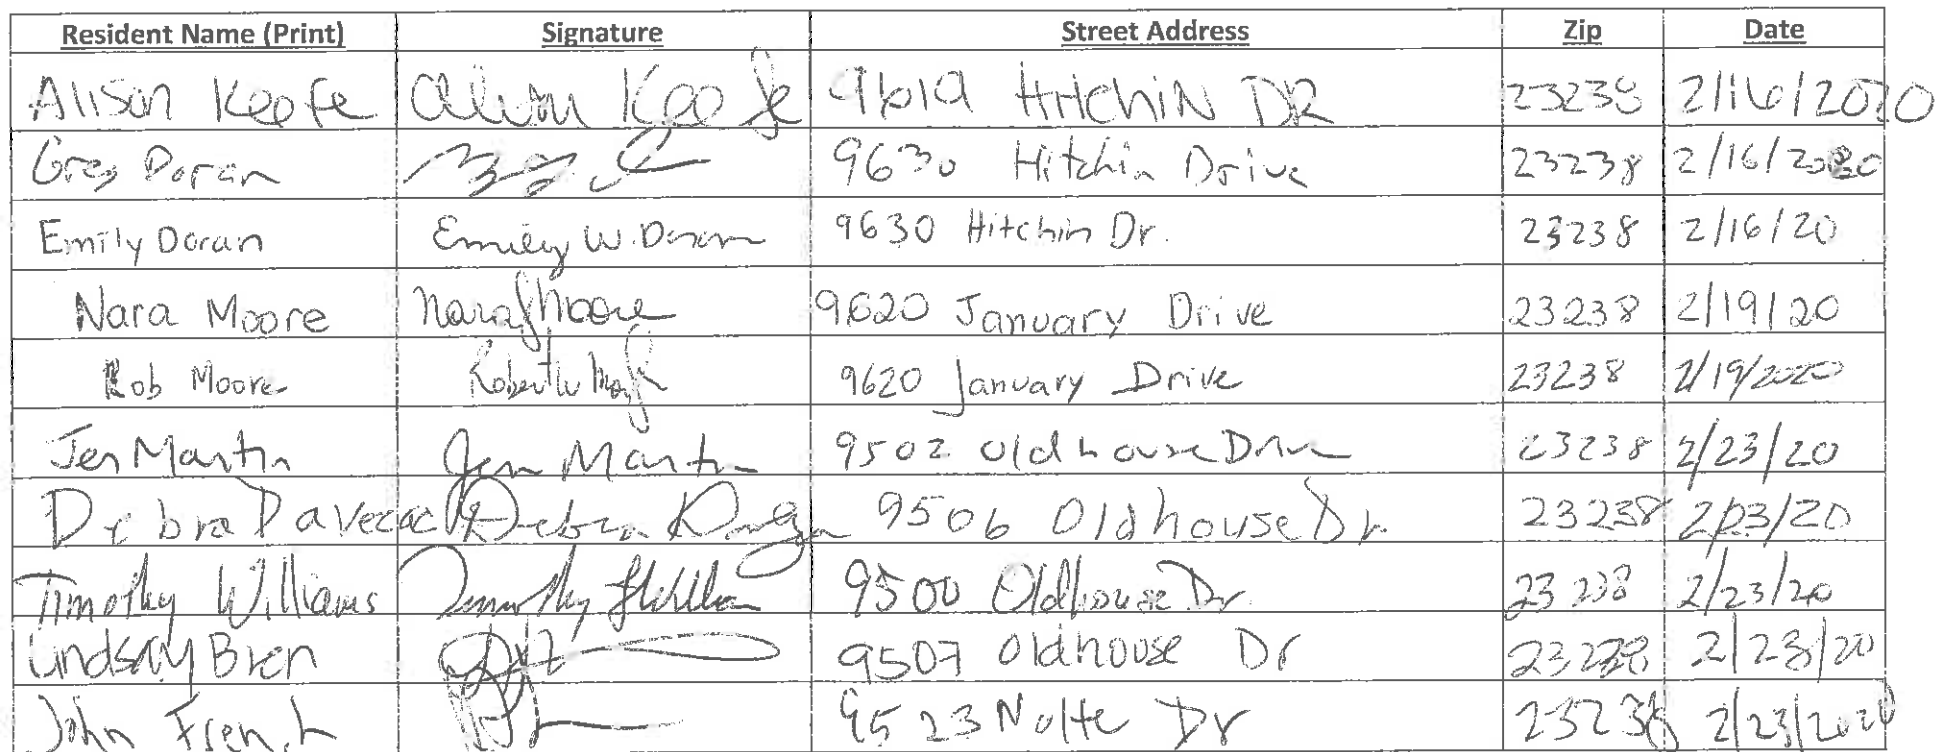 Resident Name (Print) Signature Street Address Zip Date
Alison Keefe Alison Keefe 9619 Hitchin DR 23238 2/16/2020
Greg Doran 9630 Hitchin Drive 23238 2/16/2020
Emily Doran Emily W. Doran 9630 Hitchin Dr. 23238 2/16/20
Nara Moore Nara J Moore 9620 January Drive 23238 2/19/20
Rob Moore Robert W 9620 January Drive 23238 2/19/2020
Jen Martin Jen Martin 9502 Oldhouse Drive 23238 2/23/20
Debra Debra 9506 Oldhouse Dr 23238 2/23/20
Timothy Williams Timothy 9500 Oldhouse Dr. 23238 2/23/20
Lindsay Bren 9507 Oldhouse Dr 23238 2/23/20
John French 9523 Nolte Dr 23238 2/23/2020